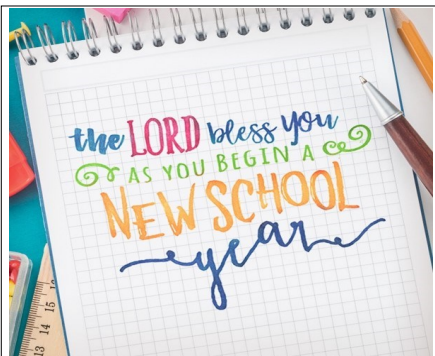 the LORD bless you
AS YOU BEGIN A
NEW SCHOOL
year
13 14 15 16